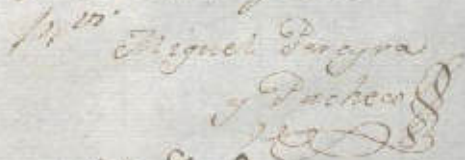 Miguel Pereyra
y Pacheco